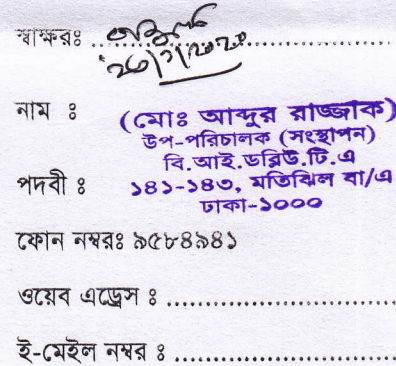 স্বাক্ষরঃ ..............................
নাম ঃ (মোঃ আব্দুর রাজ্জাক)
উপ-পরিচালক (সংস্থাপন)
বি.আই.ডব্লিউ.টি.এ
পদবী ঃ ১৪১-১৪৩, মতিঝিল বা/এ
ঢাকা-১০০০
ফোন নম্বরঃ ৯৫৮৪৯৪১
ওয়েব এড্রেস ঃ ..............................
ই-মেইল নম্বর ঃ ..............................